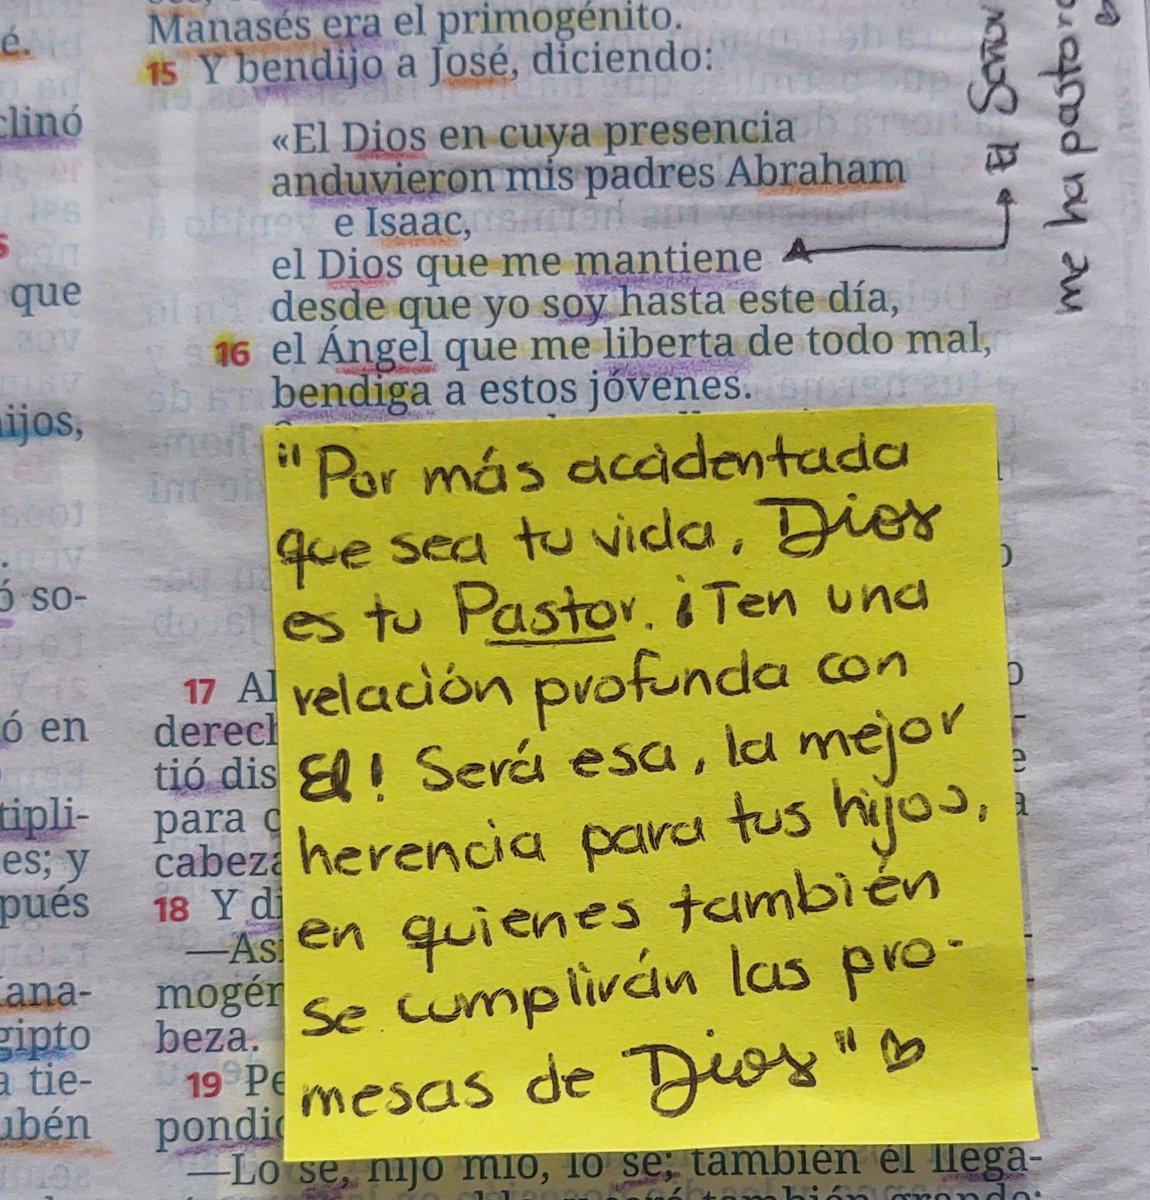 Manasés era el primogénito.
15 Y bendijo a José, diciendo:
«El Dios en cuya presencia
anduvieron mis padres Abraham
e Isaac,
el Dios que me mantiene
desde que yo soy hasta este día,
16 el Ángel que me liberta de todo mal,
bendiga a estos jóvenes.
El Señor
me ha pastore
"Por más accidentada
que sea tu vida, Dios
es tu Pastor. ¡Ten una
relación profunda con
Él! Será esa, la mejor
herencia para tus hijos,
en quienes también
se cumplirán las pro-
mesas de Dios"
17 Al
derech
tió dis
para
cabeza
18 Y di
—Así
mogén
beza.
19 Pe
pondió
—Lo sé, hijo mío, lo sé; también él llega-
é.
clinó
que
hijos,
ó so-
ó en
tipli-
es; y
pués
ana-
gipto
a tie-
ubén